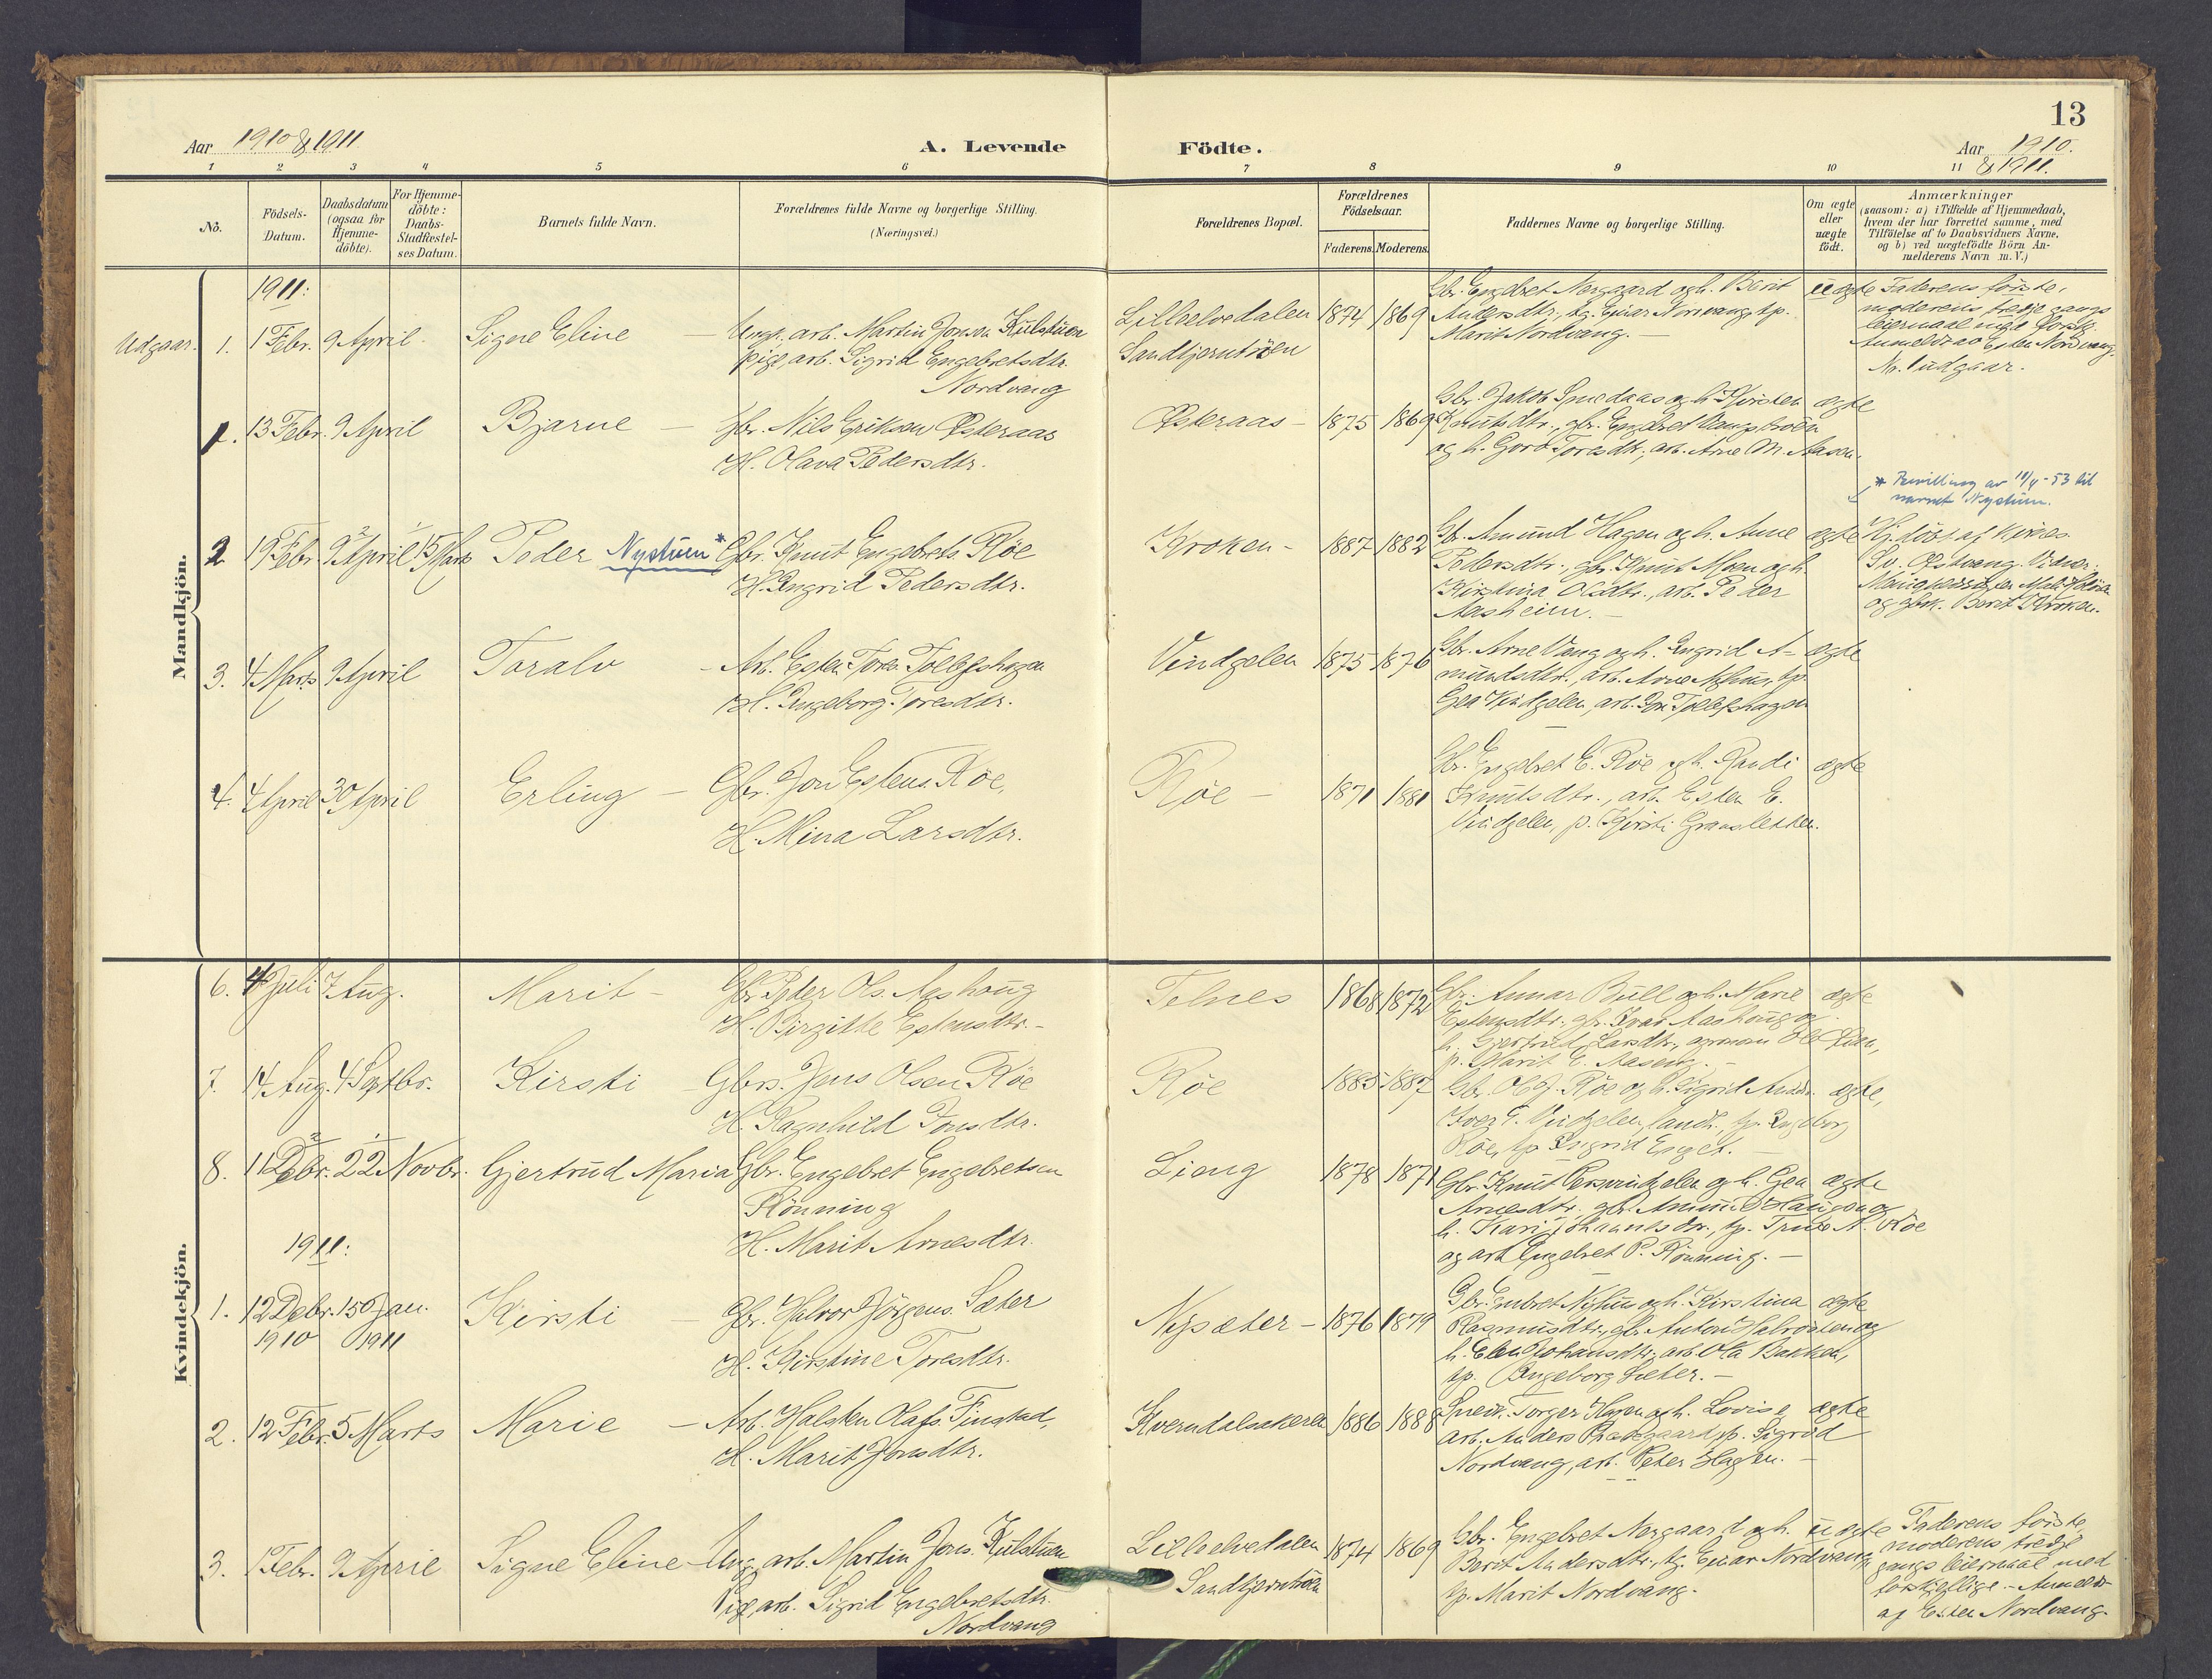 13
Aar 1910 & 1911.
A. Levende
Födte.
Aar 1910.
& 1911.
1 2 3 4 5 6 7 8 9 10 11
No.
Födsels-
Datum.
Daabsdatum
(ogsaa for
Hjemme-
döbte).
For Hjemme-
döbte:
Daabs-
Stadfæstel-
ses Datum.
Barnets fulde Navn.
Forældrenes fulde Navne og borgerlige Stilling.
(Næringsvei.)
Forældrenes Bopæl.
Forældrenes
Födselsaar.
Faderens. Moderens.
Faddernes Navne og borgerlige Stilling.
Om ægte
eller
uægte
födt.
Anmærkninger
(saasom: a) i Tilfælde af Hjemmedaab,
hvem der har forrettet samme, med
Tilföielse af to Daabsvidners Navne,
og b) ved uægtefödte Börn An-
melderens Navn m. V.)
Mandkjön.
1911:
Udgaar. 1. 1 Febr. 9 April. Signe Eline
Ungk. arb. Martin Jonsen Kulstuen
pige, arb. Sigrid Engebretsdtr.
Nordvang
Lillelvedalen
Sandtjerntröen
1874 1869
Gbr. Engebret Nergaard og h. Berit
Andersdtr., tg. Einar Nordvang, tp.
Marit Nordvang. —
uægte
Faderens förste,
moderens tredje gangs
leiermaal med forskj.
Anmeldt av Esten Nordvang.
Nr. 1 udgaar.
1. 13 Febr. 9 April Bjarne —
Gbr. Nils Eriksen Østeraas
H. Olava Pedersdtr.
Østeraas — 1875 1869
Gbr. Jakob Snedaas og h. Kirsten
Knutsdtr., gbr. Engebret Vangskroën
og h. Goro Toresdtr., arb. Arne M. Aasen.
ægte
* Bevilling av 11/4-53 til
navnet Nystuen.
2. 19 Febr. 9 April 15 Marts Peder Nystuen *
Gbr. Knut Engebrets. Röe
H. Ingrid Pedersdtr.
Kroken — 1887 1882
Gbr. Amund Hagen og h. Anne
Pedersdtr., gbr. Knut Moen og h.
Kirstina Olsdtr., arb. Peder
Aasheim. —
ægte
Hj. döbt af
Sv. Østvang. Vidner:
og gbrk. Berit Kroken.
3. 4 Marts 9 April Toralv
— Arb. Esten Tores. Tollefshagen
H. Ingeborg Toresdtr.
Vingelen 1875 1876
Gbr. Arne Vang og h. Ingrid A-
mundsdtr., arb. Arne Nyhus, tp.
Gea Vindgelen, arb. Jon Tollefshagen
ægte
4. 4 April 30 April Erling —
Gbr. Jon Estens. Röe,
H. Mina Larsdtr.
Röe — 1871 1881
Gbr. Engebret E. Röe og h. Randi
Knutsdtr., arb. Esten E.
Vindgelen, p. Kirsti Granstetten.
ægte
Kvindekjön.
6. 4 Juli 7 Aug. Marit —
Gbr. Peder Ols. Aashoug
H. Birgitte Estensdtr. —
Telnes 1868 1872
Gbr. Annar Bull og h. Marie
Estensdtr., gbr. Ivar Aashoug og
h. Gjertrud Larsdtr., agronom Ole Lien,
p. Marit E. Aaseng. —
ægte
7. 14 Aug. 4 Septbr. Kirsti
— Gbrs. Jens Olsen Röe
H. Ragnhild Jonsdtr.
Röe 1885 1887
Gbr. Ole J. Röe og h. Sigrid Andr.
Iver T. Vindgelen, landh., tp. Ingeborg
Röe, tp. Ingrid Enget. —
ægte,
8. 11 Dcbr. 22 Novbr. Gjertrud Maria
Gbr. Engebret Engebretsen
Rönning
H. Marit Arnesdtr.
Lieng 1878 1871
Gbr. Knut Persvindgelen og h. Gea
Arnesdtr., gbr. Amund Haugen og
h. Kari Johannesdtr., tp. Trude A. Röe
og arb. Engebret P. Rönning. —
ægte
1911:
1. 12 Debr. 15 Jan. Kirsti —
1910 1911
Gbr. Halvor Jörgens. Sæter
H. Kirstine Toresdtr.
Nysæter — 1876 1879
Gbr. Embret Nyhus og h. Kirstina
Rasmusdtr., gbr. Anton Halvösten og
h. Elen Johansdtr., arb. Ola Bakken,
tp. Ingeborg Sæter. —
ægte
2. 12 Febr. 5 Marts Marie
— Arb. Halsten Olafs. Finstad,
H. Marit Jonsdtr.
Kverndalsakeren 1886 1888
Sneik. Torger Hagen og h. Lovise,
arb. Anders Præstgaard, p. Sigrid
Nordvang, arb. Peter Hagen. —
ægte
3. 1 Febr. 9 April Signe Eline —
Ung. arb. Martin Jons. Kulstuen
Pige, arb. Sigrid Engebretsdtr.
Nordvang
Lillelvedalen
Sandtjerntröen
1874 1869
Gbr. Engebret Nergaard og h.
Berit Andersdtr., tg. Einar Nordvang,
tp. Marit Nordvang.
uægte
Faderens förste,
moderens tredje
gangs leiermaal med
forskjellige. — Anmeldt
af Esten Nordvang.